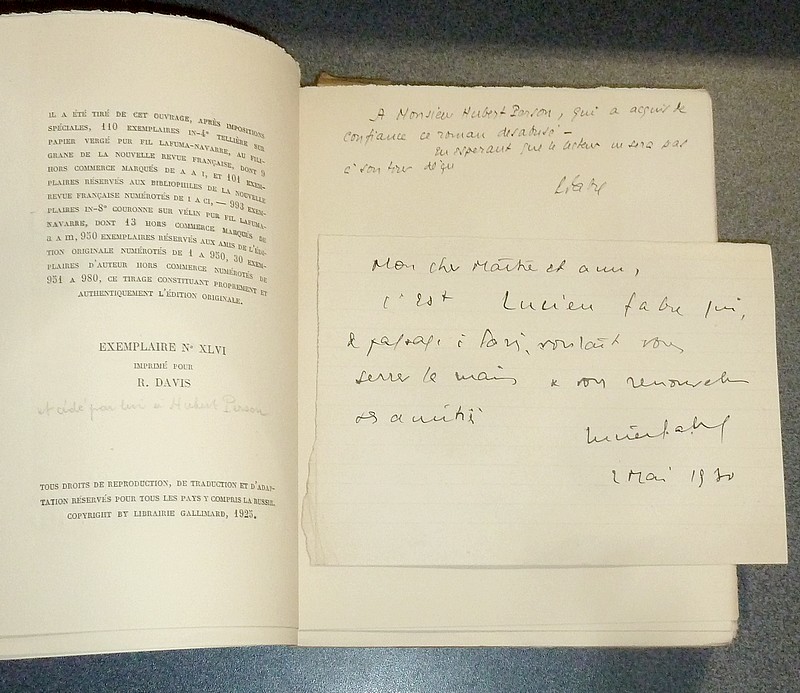 IL A ÉTÉ TIRÉ DE CET OUVRAGE, APRÈS IMPOSITIONS
SPÉCIALES, 110 EXEMPLAIRES IN-4° TELLIÈRE SUR
PAPIER VERGÉ PUR FIL LAFUMA-NAVARRE, AU FILI-
GRANE DE LA NOUVELLE REVUE FRANÇAISE, DONT 9
HORS COMMERCE MARQUÉS DE A A I, ET 101 EXEM-
PLAIRES RÉSERVÉS AUX BIBLIOPHILES DE LA NOUVELLE
REVUE FRANÇAISE NUMÉROTÉS DE I A CI, — 993 EXEM-
PLAIRES IN-8° COURONNE SUR VÉLIN PUR FIL LAFUMA-
NAVARRE, DONT 13 HORS COMMERCE MARQUÉS DE
a A m, 950 EXEMPLAIRES RÉSERVÉS AUX AMIS DE L'ÉDI-
TION ORIGINALE NUMÉROTÉS DE 1 A 950, 30 EXEM-
PLAIRES D'AUTEUR HORS COMMERCE NUMÉROTÉS DE
951 A 980, CE TIRAGE CONSTITUANT PROPREMENT ET
AUTHENTIQUEMENT L'ÉDITION ORIGINALE.
EXEMPLAIRE N° XLVI
IMPRIMÉ POUR
R. DAVIS
et cédé par lui à Hubert Person
TOUS DROITS DE REPRODUCTION, DE TRADUCTION ET D'ADAP-
TATION RÉSERVÉS POUR TOUS LES PAYS Y COMPRIS LA RUSSIE.
COPYRIGHT BY LIBRAIRIE GALLIMARD, 1925.
A Monsieur Hubert Person, qui a acquis de
confiance ce roman desabusé —
En esperant que le lecteur ne sera pas
à son tour déçu
LFabre
Mon cher Maître et ami,
c'est Lucien Fabre qui,
de passage à Paris, voulait vous
serrer la main & vous renouveler
ses amitiés
Lucien Fabre
2 Mai 1930